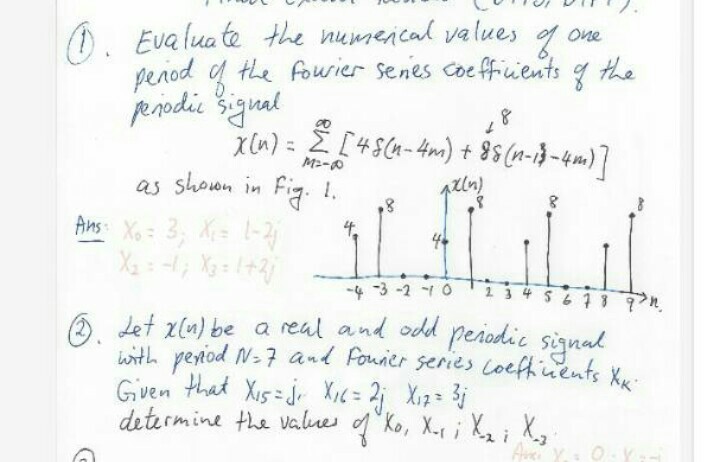 ①. Evaluate the numerical values of one
period of the Fourier series coefficients of the
periodic signal
x(n) = Σ [4δ(n-4m) + 8δ(n-1-4m)]
∞
m=-∞
8
as shown in Fig. 1.
x(n)
Ans: X₀ = 3; X₁ = 1-2j
X₂ = -1; X₃ = 1+2j
4 8 4 8 8 8
-4 -3 -2 -1 0 1 2 3 4 5 6 7 8 9 n.
②. Let x(n) be a real and odd periodic signal
with period N=7 and Fourier series coefficients Xₖ.
Given that X₁₅ = j, X₁₆ = 2j X₁₇ = 3j
determine the values of X₀, X₋₁; X₋₂; X₋₃.